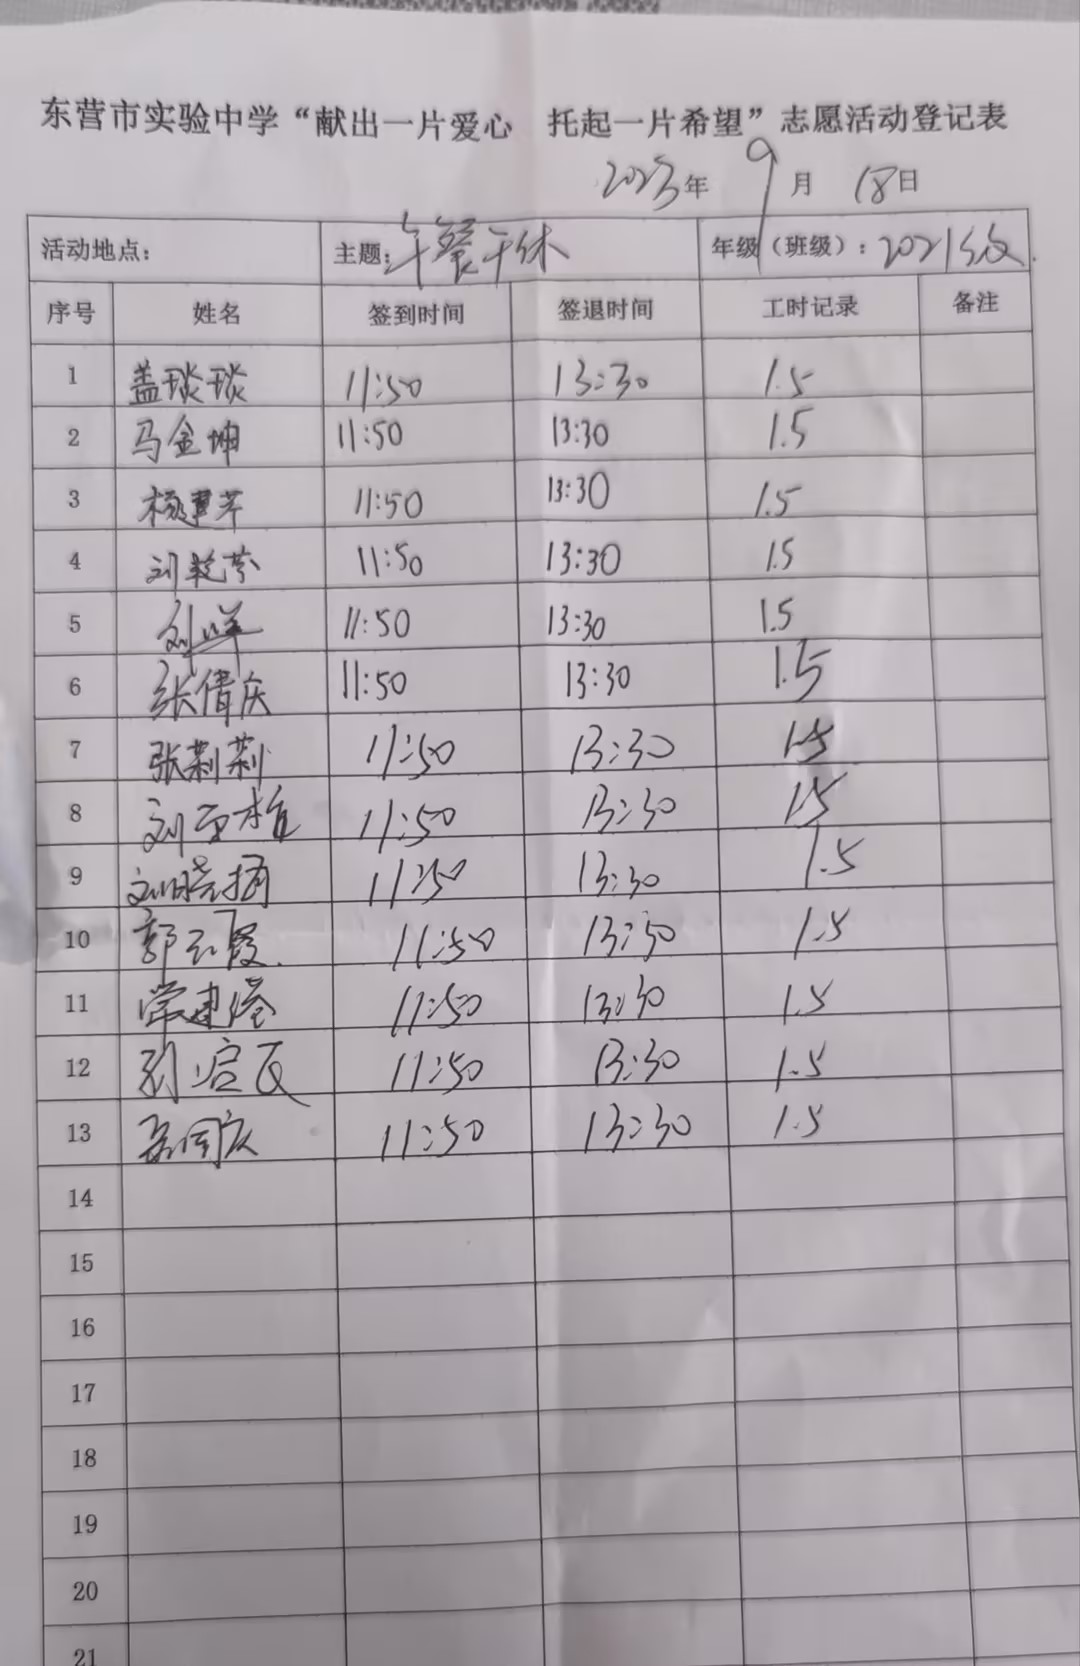 东营市实验中学“献出一片爱心 托起一片希望”志愿活动登记表
2023年 9月 18日
活动地点： 主题：午餐午休 年级（班级）：2021级
序号 姓名 签到时间 签退时间 工时记录 备注
1 盖琰琰 11:50 13:30 1.5
2 马金坤 11:50 13:30 1.5
3 杨慧芹 11:50 13:30 1.5
4 刘 11:50 13:30 1.5
5 刘洋 11:50 13:30 1.5
6 张倩庆 11:50 13:30 1.5
7 张莉莉 11:50 13:30 1.5
8 刘 11:50 13:30 1.5
9 刘晓 11:50 13:30 1.5
10 郭云霞 11:50 13:30 1.5
11 常建 11:50 13:30 1.5
12 11:50 13:30 1.5
13 国庆 11:50 13:30 1.5
14
15
16
17
18
19
20
21